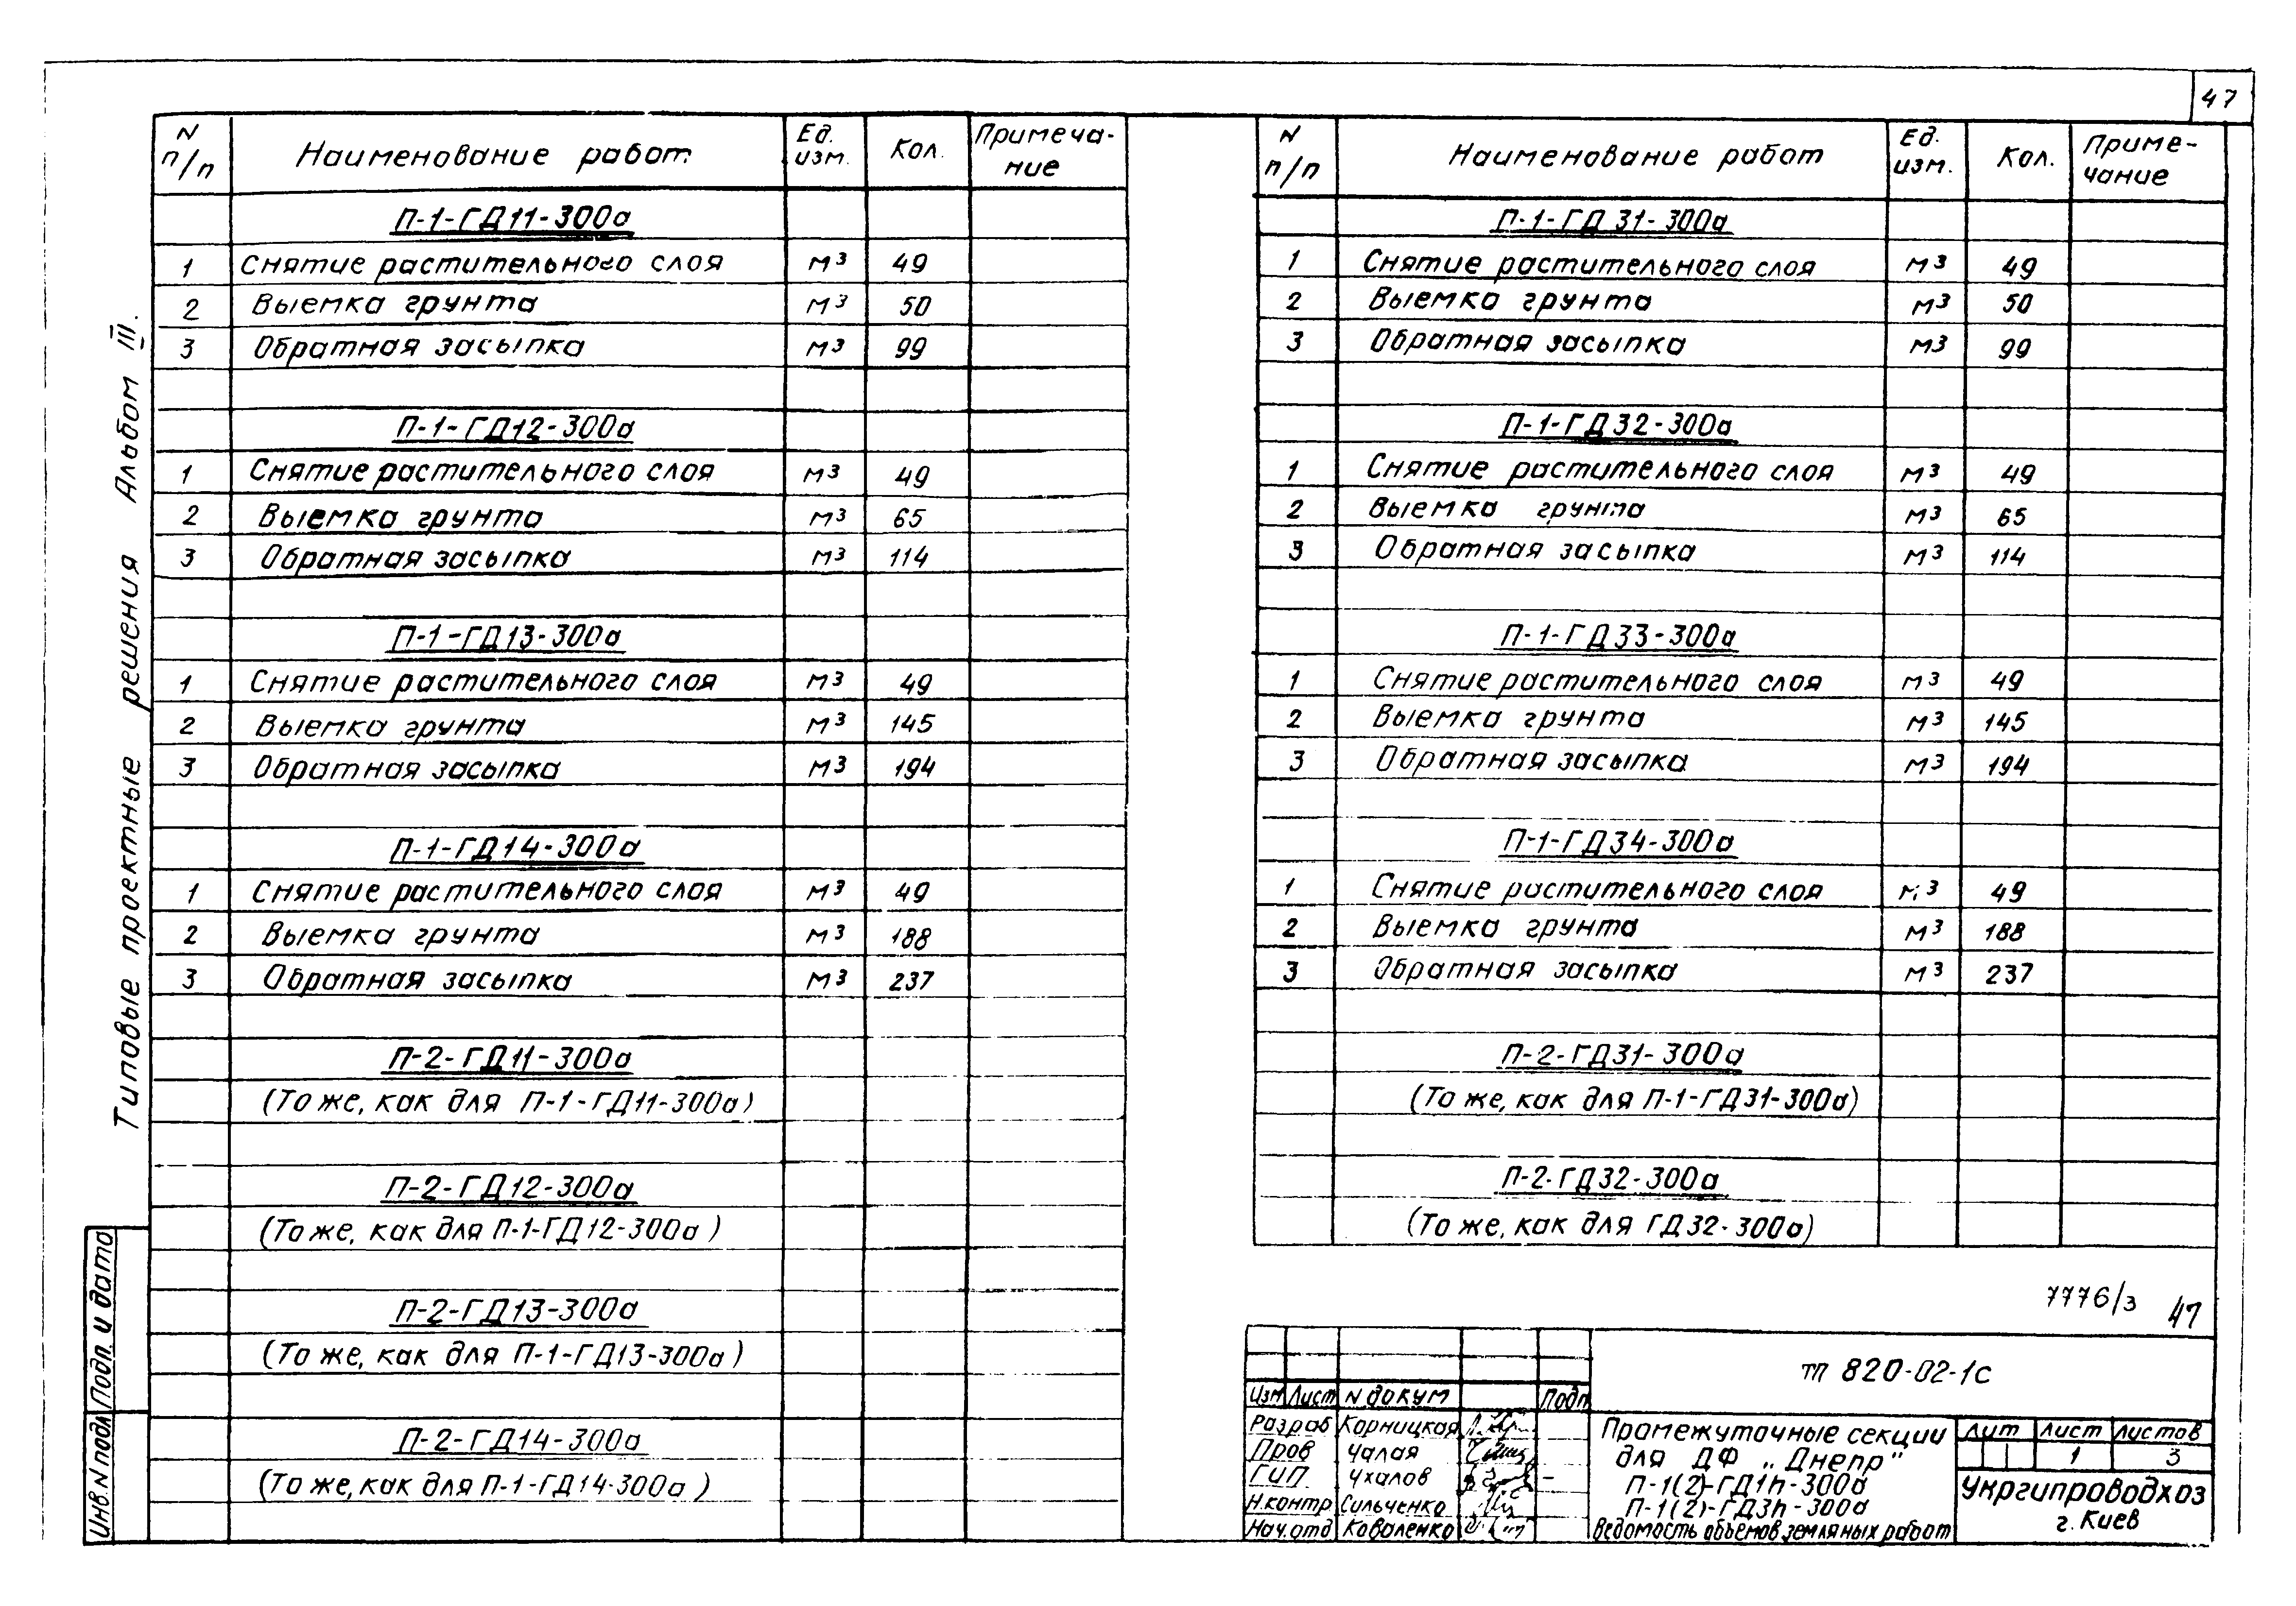 47
Типовые проектные решения Альбом III.
N п/п Наименование работ Ед. изм. Кол. Примеча-ние
П-1-ГД11-300а
1 Снятие растительного слоя м3 49
2 Выемка грунта м3 50
3 Обратная засыпка м3 99
П-1-ГД12-300а
1 Снятие растительного слоя м3 49
2 Выемка грунта м3 65
3 Обратная засыпка м3 114
П-1-ГД13-300а
1 Снятие растительного слоя м3 49
2 Выемка грунта м3 145
3 Обратная засыпка м3 194
П-1-ГД14-300а
1 Снятие растительного слоя м3 49
2 Выемка грунта м3 188
3 Обратная засыпка м3 237
П-2-ГД11-300а
(То же, как для П-1-ГД11-300а)
П-2-ГД12-300а
(То же, как для П-1-ГД12-300а)
П-2-ГД13-300а
(То же, как для П-1-ГД13-300а)
П-2-ГД14-300а
(То же, как для П-1-ГД14-300а)
N п/п Наименование работ Ед. изм. Кол. Приме-чание
П-1-ГД31-300а
1 Снятие растительного слоя м3 49
2 Выемка грунта м3 50
3 Обратная засыпка м3 99
П-1-ГД32-300а
1 Снятие растительного слоя м3 49
2 Выемка грунта м3 65
3 Обратная засыпка м3 114
П-1-ГД33-300а
1 Снятие растительного слоя м3 49
2 Выемка грунта м3 145
3 Обратная засыпка м3 194
П-1-ГД34-300а
1 Снятие растительного слоя м3 49
2 Выемка грунта м3 188
3 Обратная засыпка м3 237
П-2-ГД31-300а
(То же, как для П-1-ГД31-300а)
П-2-ГД32-300а
(То же, как для ГД32-300а)
7776/3 47
Инв. N подл Подп. и дата
тп 820-02-1с
Изм Лист N докум Подп
Разраб Корницкая
Пров Чалая
ГИП Ухалов
Н.контр Сильченко
Нач.отд Коваленко
Промежуточные секции
для ДФ „Днепр"
П-1(2)-ГД1h-300а
П-1(2)-ГД3h-300а
Ведомость объемов земляных работ
Лит Лист Листов
1 3
Укргипроводхоз
г. Киев